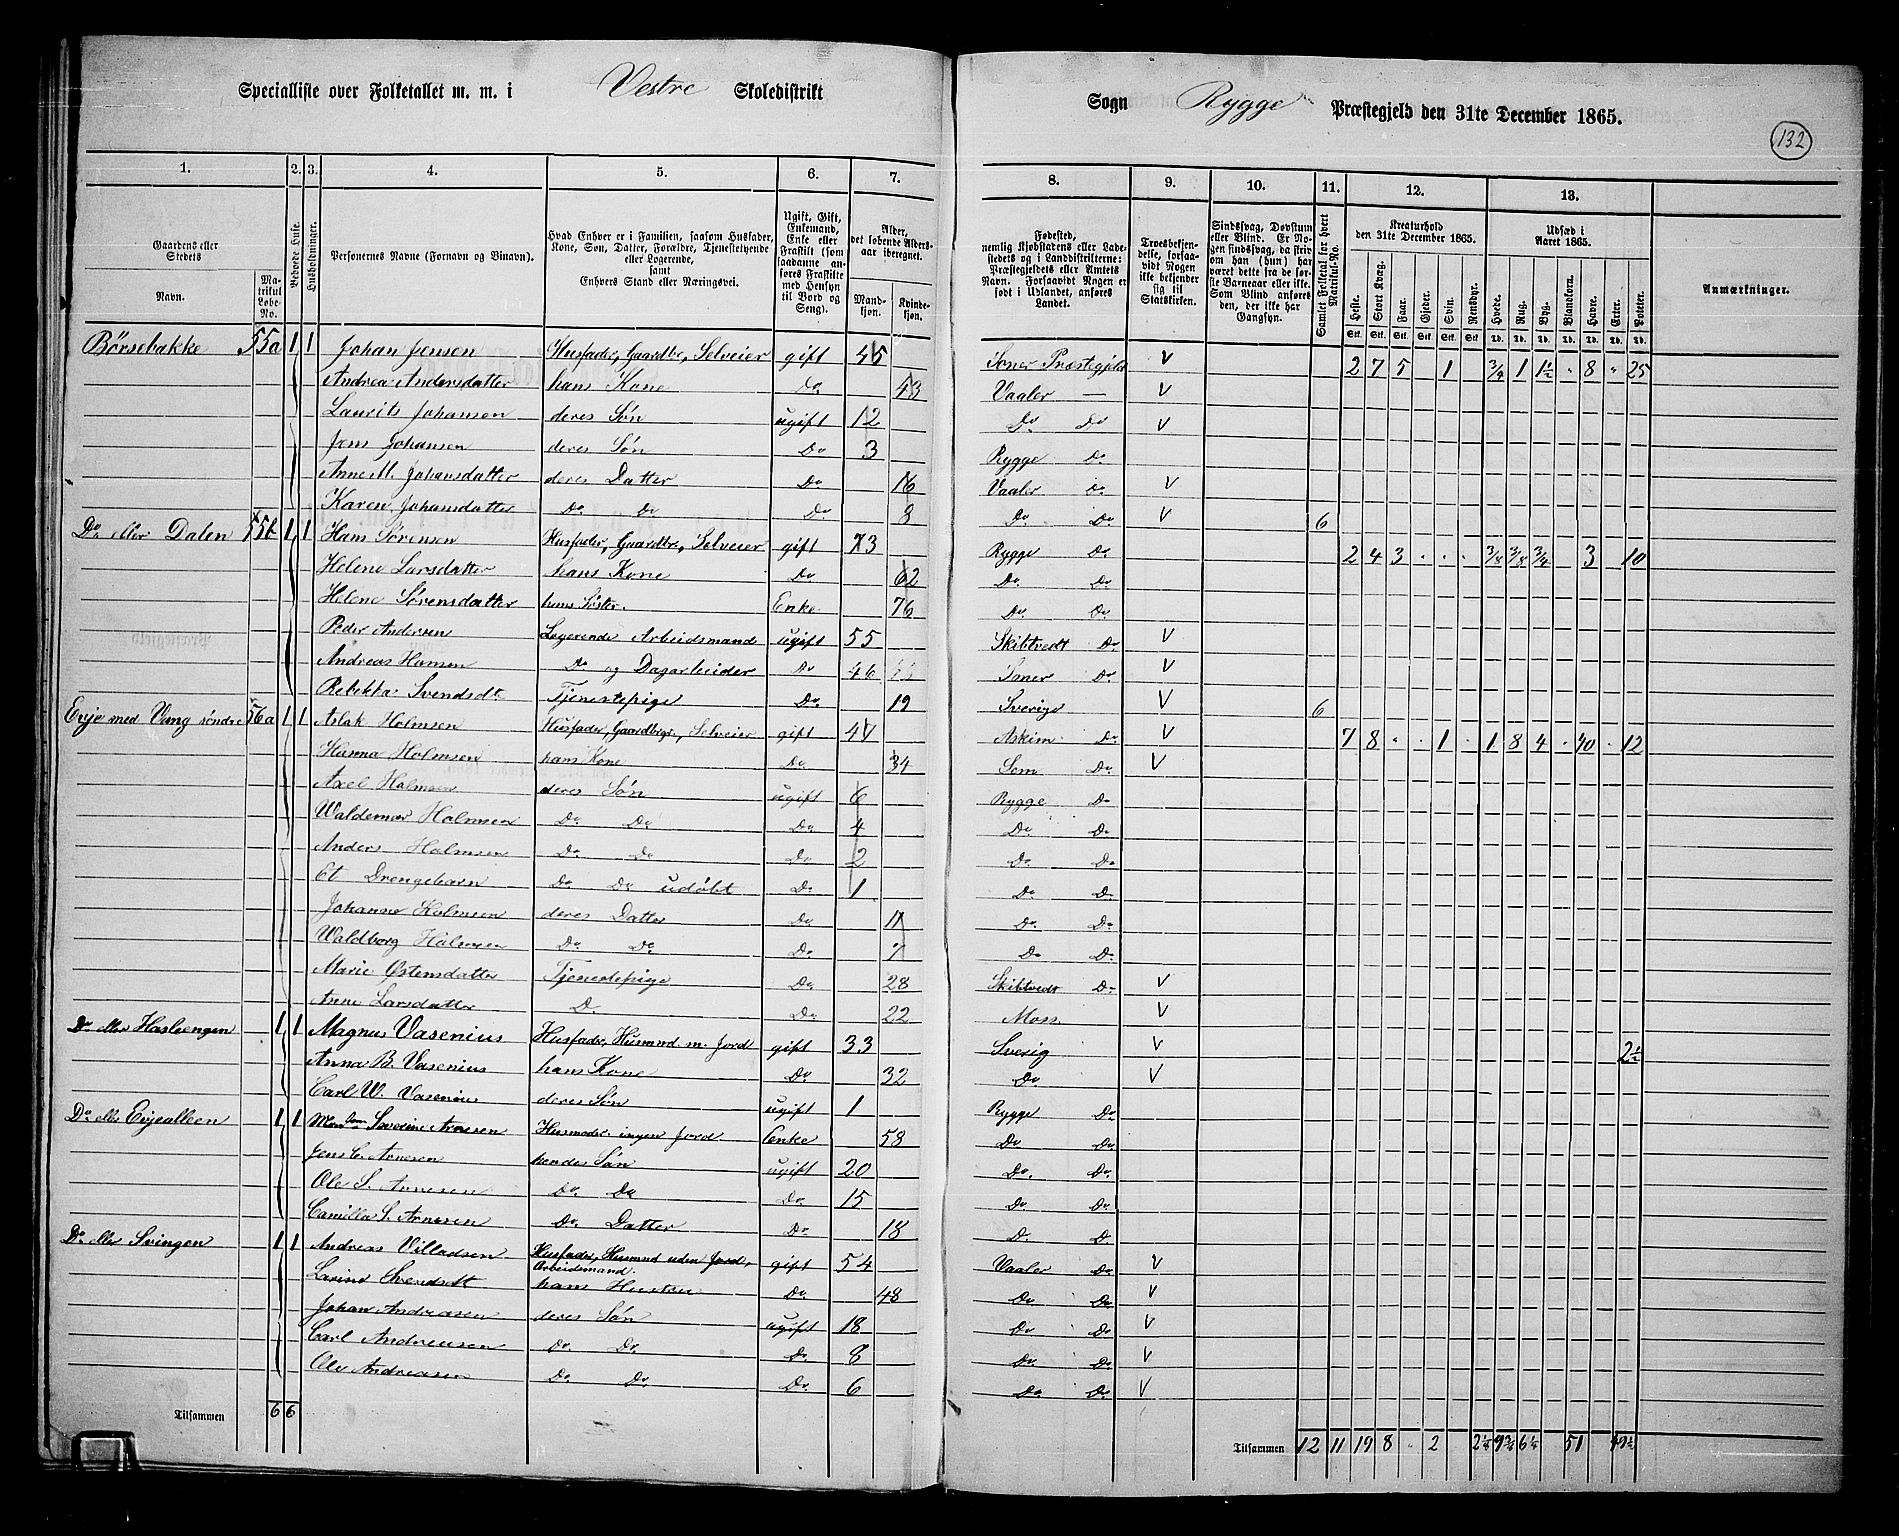 Specialliste over Folketallet m. m. i Vestre Skoledistrikt
Sogn Rygge Præstegjeld den 31te December 1865.
132
1. 2. 3. 4. 5. 6. 7. 8. 9. 10. 11. 12. 13.
Gaardens eller Stedets Navn. Matrikul Løbe-No.
Beboede Huse.
Husholdninger.
Personernes Navne (Fornavn og Binavn).
Hvad Enhver er i Familien, saasom Husfader, Kone, Søn, Datter, Forældre, Tjenestetyende eller Logerende, samt Enhvers Stand eller Næringsvei.
Ugift, Gift, Enkemand, Enke eller Fraskilt (som saadanne anføres Fraskilte med Hensyn til Bord og Seng).
Alder, det løbende Aldersaar iberegnet. Mandkjøn. Kvindekjøn.
Fødested, nemlig Kjøbstadens eller Ladestedets og i Landdistrikterne: Præstegjeldets eller Amtets Navn. Forsaavidt Nogen er født i Udlandet, anføres Landet.
Troesbekjendelse, forsaavidt Nogen ikke bekjender sig til Statskirken.
Sindssvag, Døvstum eller Blind. Er Nogen sindssvag, da skrives om han (hun) har været dette fra de første Barneaar eller ikke. Som Blind anføres den, der ikke har Gangsyn.
Samlet Folketal for hvert Matrikul-No.
Kreaturhold den 31te December 1865. Heste. Stort Kvæg. Faar. Gjeder. Svin. Rensdyr.
Udsæd i Aaret 1865. Hvede. Rug. Byg. Blandkorn. Havre. Erter. Poteter.
Anmærkninger.
Stk. Stk. Stk. Stk. Stk. Stk. Td. Td. Td. Td. Td. Td. Td.
Børsebakke 55a 1 1 Johan Jensen Husfader, Gaardbr., Selveier gift 45 Soner Præstegjeld V 2 7 5 1 3/4 1 1½ 8 25
Andrea Andersdatter hans Kone Do 43 Vaaler — V
Laurits Johansen deres Søn ugift 12 Do Do V
Jens Johansen deres Søn Do 3 Rygge Do
Anne M. Johansdatter deres Datter Do 16 Vaaler Do V
Karen Johansdatter Do Do Do 8 Do Do V 6
Do eller Dalen 55b 1 1 Hans Sørensen Husfader, Gaardbr., Selveier gift 73 Rygge Do 2 4 3 3/8 3/8 3/4 3 10
Helene Larsdatter hans Kone Do 62 Do Do
Helene Sørensdatter hans Søster. Enke 76 Do Do
Peder Andersen Logerende Arbeidsmand ugift 55 Skibtvedt Do V
Andreas Hansen Do og Dagarbeider Do 46 Soner Do V
Rebekka Svendsdt. Tjenestepige Do 19 Sverige V 6
Evje med Vang søndre 56a 1 1 Aslak Holmsen Husfader, Gaardbrgr., Selveier gift 41 Askim Do V 7 8 1 1 8 4 40 12
Hanna Holmsen hans Kone Do 34 Sem Do V
Axel Holmsen deres Søn ugift 6 Rygge Do
Waldemar Holmsen Do Do Do 4 Do Do
Anders Holmsen Do Do Do 2 Do Do
Et Drengebarn Do Do udøbt Do 1 Do Do
Johanne Holmsen deres Datter Do 11 Do Do
Waldborg Holmsen Do Do Do 7 Do Do
Marie Østensdatter Tjenestepige Do 28 Skibtvedt Do V
Anne Larsdatter D. Do 22 Moss V
Do eller Hasleengen 1 1 Magnus Vasenius Husfader, Husmand m. Jord gift 33 Sverig V 2½
Anna B. Vasenius hans Kone Do 32 Do V
Carl W. Vasenius deres Søn ugift 1 Rygge Do
Do eller Evjealleen 1 1 Severine Arnesen Husmoder ingen Jord Enke 58 Do Do
Jens C. Arnesen hendes Søn ugift 20 Do Do
Ole S. Arnesen Do Do Do 15 Do Do
Camilla S. Arnesen Do Datter Do 18 D. D.
Do eller Svingen 1 1 Andreas Villadsen Husfader, Husmnd uden Jord, Arbeidsmand. gift 54 Vaaler Do V
Larine Svendsdt hans Hustru Do 48 Do Do V
Johan Andreasen deres Søn ugift 18 Do Do V
Carl Andreasen Do Do Do 8 Do Do V
Ole Andreasen Do Do Do 6 Do Do V
Tilsammen 6 6
Tilsammen 12 11 19 8 2 2¼ 9¾ 6¼ 51 49½